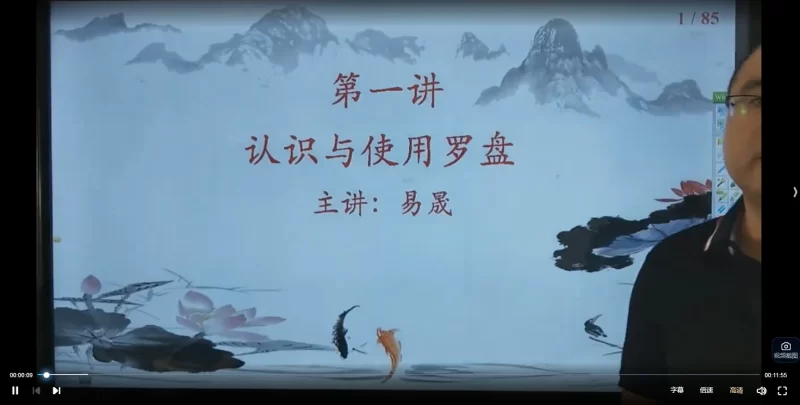 1 / 85
第一讲
认识与使用罗盘
主讲：易晟
视频截图
00:00:09
00:11:55
字幕
倍速
高清